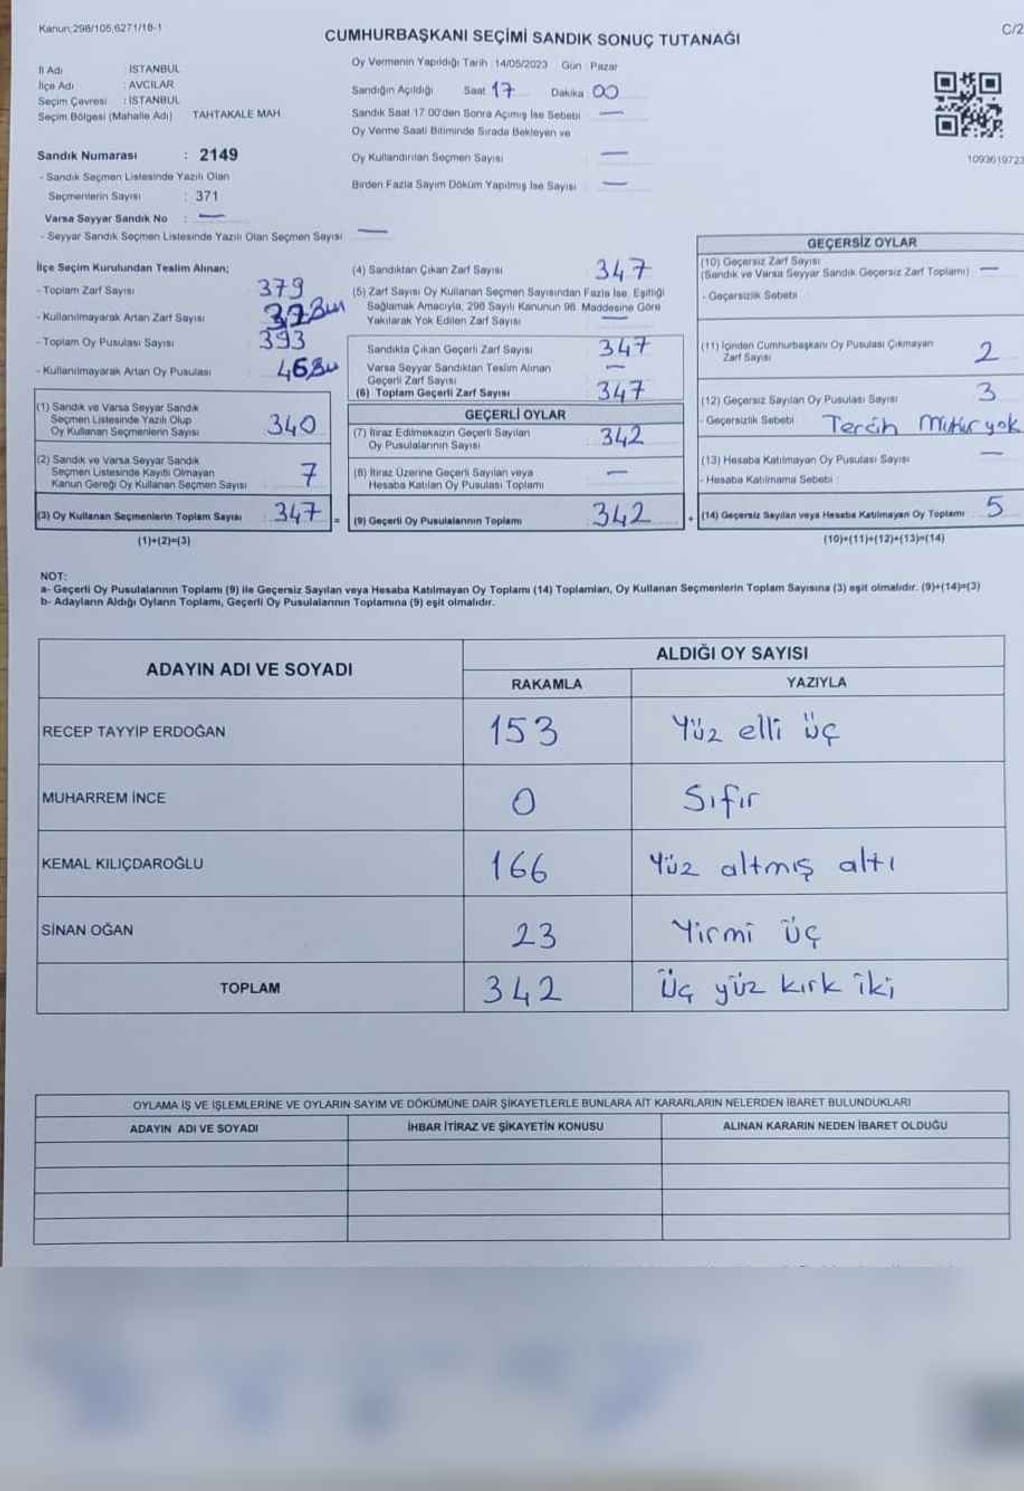 Kanun;298/105,6271/18-1
C/2
CUMHURBAŞKANI SEÇİMİ SANDIK SONUÇ TUTANAĞI
İl Adı : İSTANBUL
İlçe Adı : AVCILAR
Seçim Çevresi : İSTANBUL
Seçim Bölgesi (Mahalle Adı) TAHTAKALE MAH.
Sandık Numarası : 2149
- Sandık Seçmen Listesinde Yazılı Olan
Seçmenlerin Sayısı : 371
Varsa Seyyar Sandık No : —
- Seyyar Sandık Seçmen Listesinde Yazılı Olan Seçmen Sayısı —
Oy Vermenin Yapıldığı Tarih : 14/05/2023 Gün : Pazar
Sandığın Açıldığı Saat 17 Dakika 00
Sandık Saat 17.00'den Sonra Açılmış İse Sebebi —
Oy Verme Saati Bitiminde Sırada Bekleyen ve
Oy Kullandırılan Seçmen Sayısı —
Birden Fazla Sayım Döküm Yapılmış İse Sayısı —
1093619723
İlçe Seçim Kurulundan Teslim Alınan;
- Toplam Zarf Sayısı 379
- Kullanılmayarak Artan Zarf Sayısı
- Toplam Oy Pusulası Sayısı 393
- Kullanılmayarak Artan Oy Pusulası 46
(1) Sandık ve Varsa Seyyar Sandık
Seçmen Listesinde Yazılı Olup
Oy Kullanan Seçmenlerin Sayısı 340
(2) Sandık ve Varsa Seyyar Sandık
Seçmen Listesinde Kayıtlı Olmayan
Kanun Gereği Oy Kullanan Seçmen Sayısı 7
(3) Oy Kullanan Seçmenlerin Toplam Sayısı 347 =
(1)+(2)=(3)
(4) Sandıktan Çıkan Zarf Sayısı 347
(5) Zarf Sayısı Oy Kullanan Seçmen Sayısından Fazla İse, Eşitliği
Sağlamak Amacıyla, 298 Sayılı Kanunun 98. Maddesine Göre
Yakılarak Yok Edilen Zarf Sayısı —
Sandıkta Çıkan Geçerli Zarf Sayısı 347
Varsa Seyyar Sandıktan Teslim Alınan
Geçerli Zarf Sayısı —
(6) Toplam Geçerli Zarf Sayısı 347
GEÇERLİ OYLAR
(7) İtiraz Edilmeksizin Geçerli Sayılan
Oy Pusulalarının Sayısı 342
(8) İtiraz Üzerine Geçerli Sayılan veya
Hesaba Katılan Oy Pusulası Toplamı —
(9) Geçerli Oy Pusulalarının Toplamı 342 +
GEÇERSİZ OYLAR
(10) Geçersiz Zarf Sayısı
(Sandık ve Varsa Seyyar Sandık Geçersiz Zarf Toplamı) —
- Geçersizlik Sebebi
(11) İçinden Cumhurbaşkanı Oy Pusulası Çıkmayan
Zarf Sayısı 2
(12) Geçersiz Sayılan Oy Pusulası Sayısı 3
- Geçersizlik Sebebi Tercih Mührü yok
(13) Hesaba Katılmayan Oy Pusulası Sayısı —
- Hesaba Katılmama Sebebi :
(14) Geçersiz Sayılan veya Hesaba Katılmayan Oy Toplamı 5
(10)+(11)+(12)+(13)=(14)
NOT:
a- Geçerli Oy Pusulalarının Toplamı (9) ile Geçersiz Sayılan veya Hesaba Katılmayan Oy Toplamı (14) Toplamları, Oy Kullanan Seçmenlerin Toplam Sayısına (3) eşit olmalıdır. (9)+(14)=(3)
b- Adayların Aldığı Oyların Toplamı, Geçerli Oy Pusulalarının Toplamına (9) eşit olmalıdır.
ADAYIN ADI VE SOYADI
ALDIĞI OY SAYISI
RAKAMLA YAZIYLA
RECEP TAYYİP ERDOĞAN 153 Yüz elli üç
MUHARREM İNCE 0 Sıfır
KEMAL KILIÇDAROĞLU 166 Yüz altmış altı
SİNAN OĞAN 23 Yirmi üç
TOPLAM 342 Üç yüz kırk iki
OYLAMA İŞ VE İŞLEMLERİNE VE OYLARIN SAYIM VE DÖKÜMÜNE DAİR ŞİKAYETLERLE BUNLARA AİT KARARLARIN NELERDEN İBARET BULUNDUKLARI
ADAYIN ADI VE SOYADI İHBAR İTİRAZ VE ŞİKAYETİN KONUSU ALINAN KARARIN NEDEN İBARET OLDUĞU